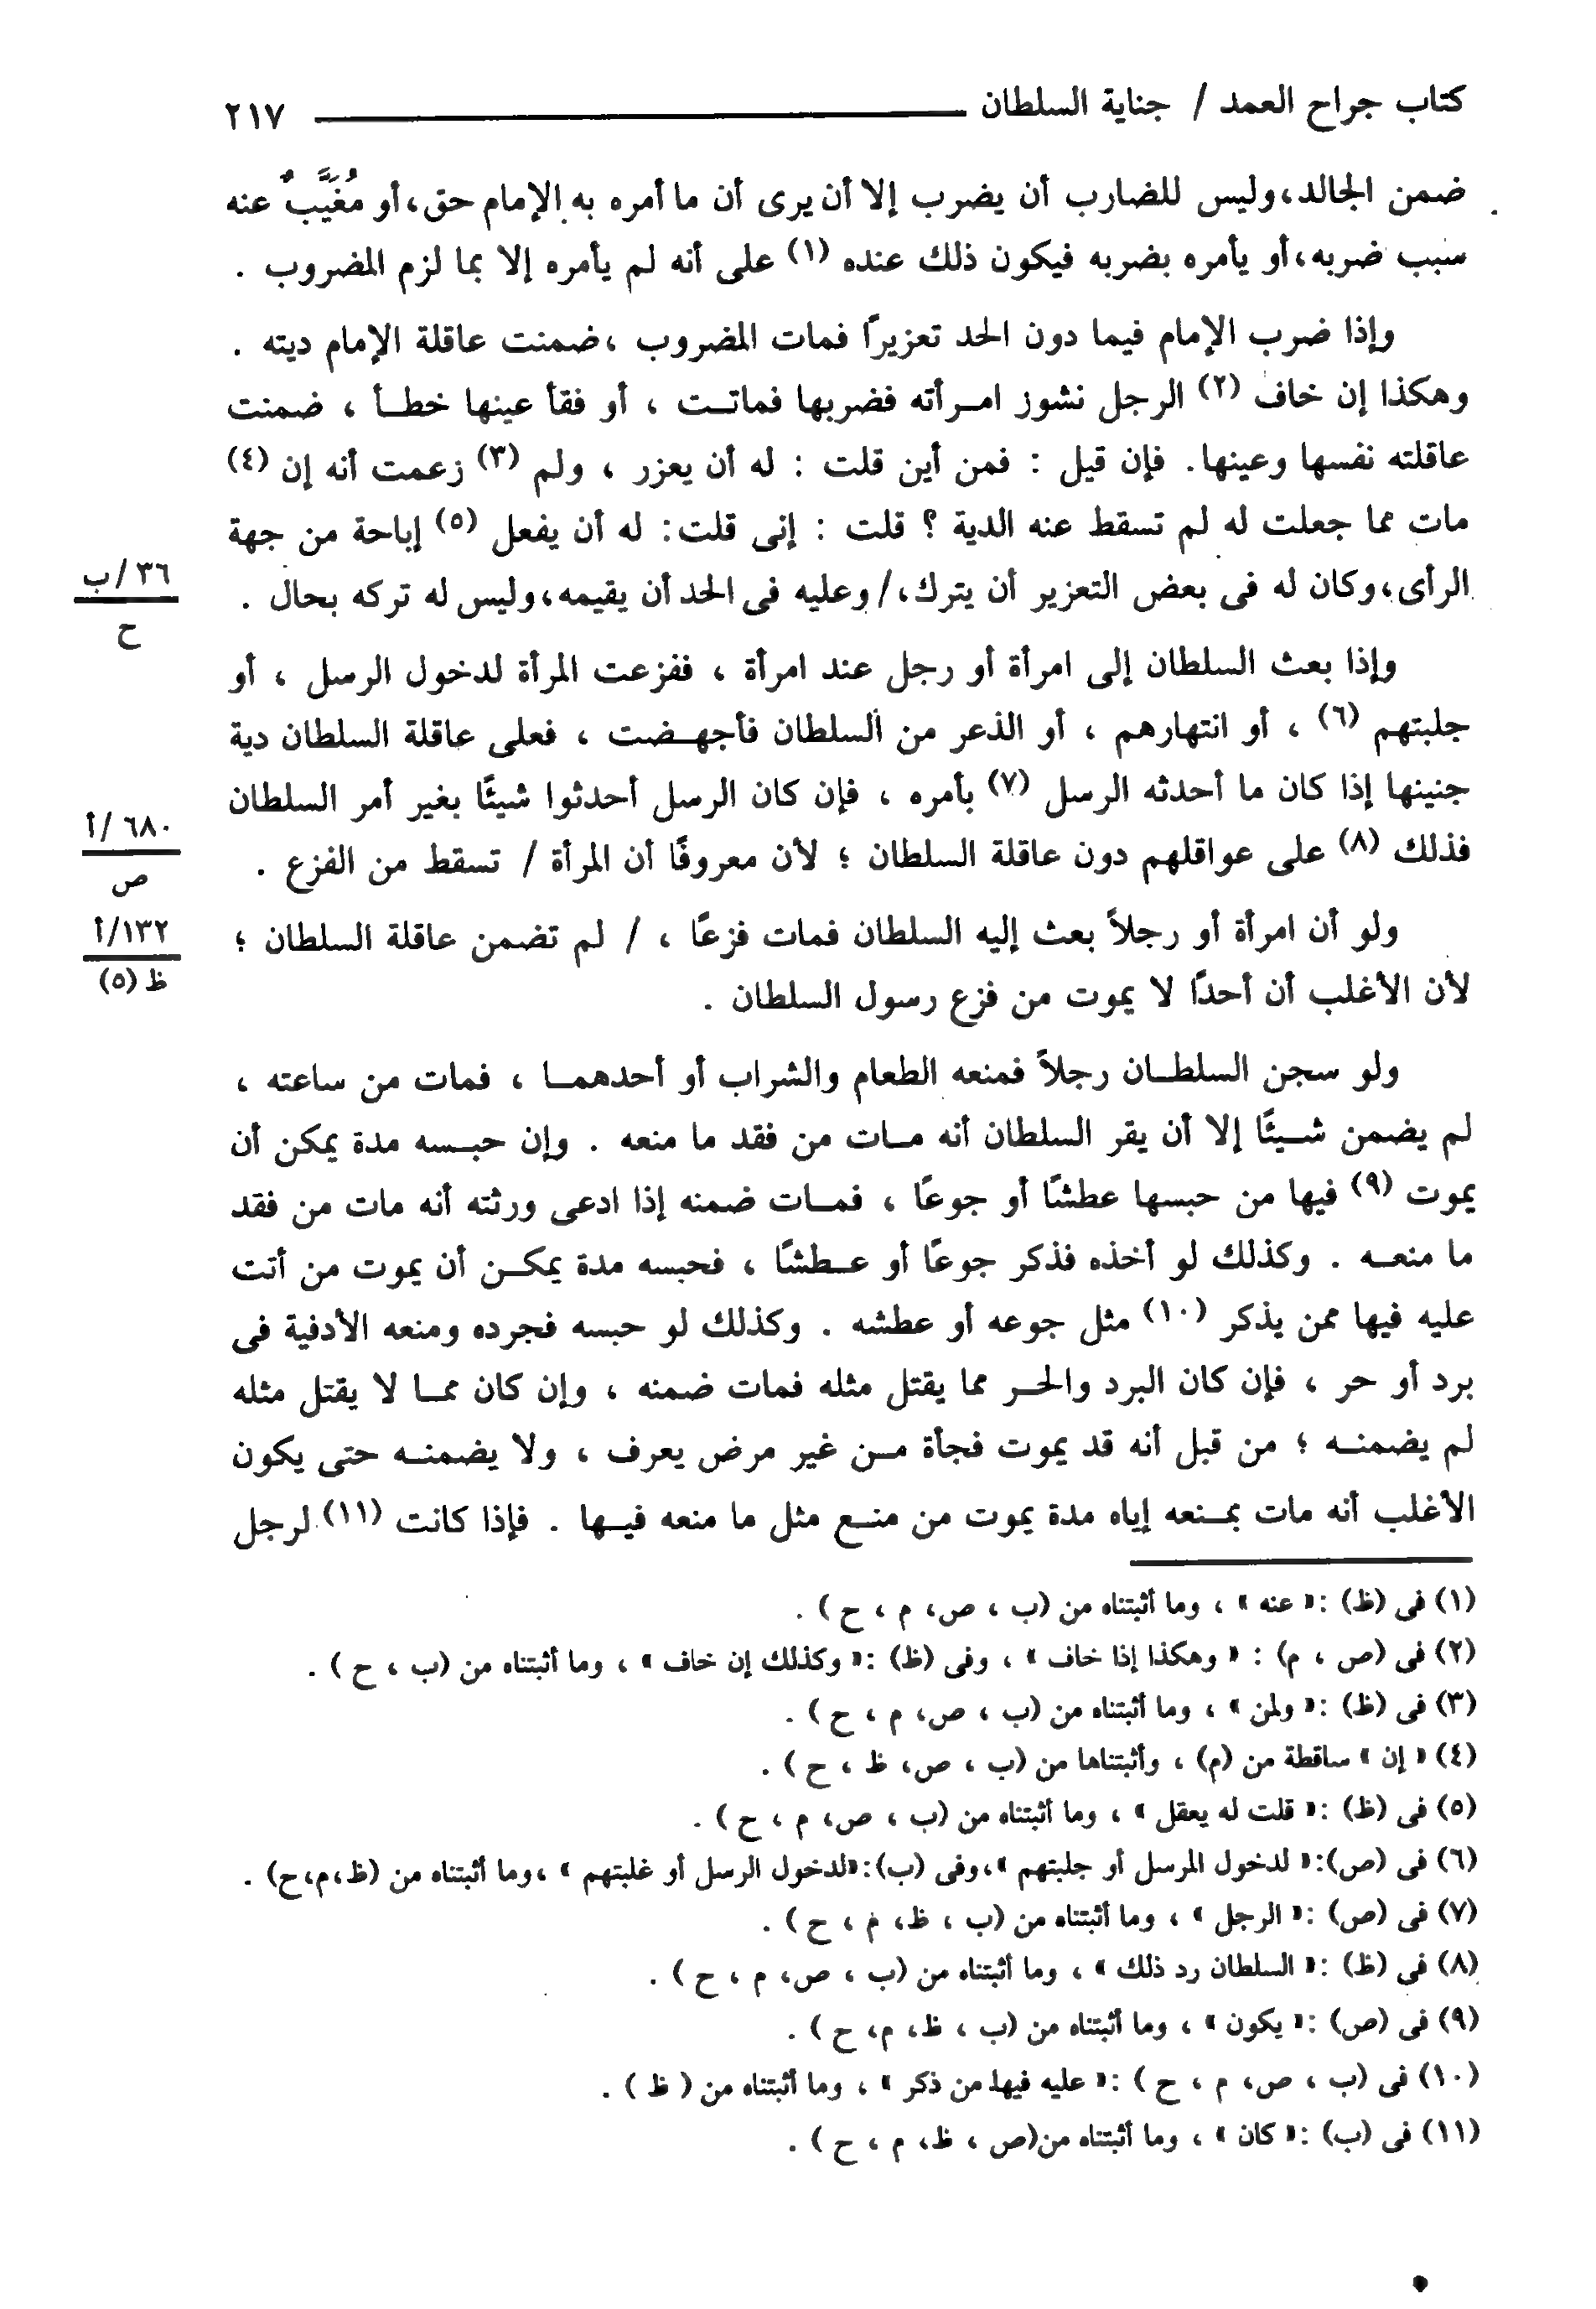 كتاب جراح العمد / جناية السلطان ـــــــــــــــــ ٢١٧
ضمن الجالد،وليس للضارب أن يضرب إلا أن يرى أن ما أمره به الإمام حق،أو مُغَيَّبٌ عنه
سبب ضربه،أو يأمره بضربه فيكون ذلك عنده (١) على أنه لم يأمره إلا بما لزم المضروب .
وإذا ضرب الإمام فيما دون الحد تعزيرًا فمات المضروب ،ضمنت عاقلة الإمام ديته .
وهكذا إن خاف (٢) الرجل نشوز امـرأته فضربها فماتـت ، أو فقأ عينها خطـأ ، ضمنت
عاقلته نفسها وعينها. فإن قيل : فمن أين قلت : له أن يعزر ، ولم (٣) زعمت أنه إن (٤)
مات مما جعلت له لم تسقط عنه الدية ؟ قلت : إنى قلت: له أن يفعل (٥) إباحة من جهة
الرأى،وكان له فى بعض التعزير أن يترك،/وعليه فى الحد أن يقيمه،وليس له تركه بحال .
٣٦/ب
ح
وإذا بعث السلطان إلى امرأة أو رجل عند امرأة ، ففزعت المرأة لدخول الرسل ، أو
جلبتهم (٦) ، أو انتهارهم ، أو الذعر من السلطان فأجهـضت ، فعلى عاقلة السلطان دية
جنينها إذا كان ما أحدثه الرسل (٧) بأمره ، فإن كان الرسل أحدثوا شيئًا بغير أمر السلطان
فذلك (٨) على عواقلهم دون عاقلة السلطان ؛ لأن معروفًا أن المرأة / تسقط من الفزع .
٦٨٠/أ
ص
ولو أن امرأة أو رجلاً بعث إليه السلطان فمات فزعًا ، / لم تضمن عاقلة السلطان ؛
١٣٢/أ
ظ (٥)
لأن الأغلب أن أحدًا لا يموت من فزع رسول السلطان .
ولو سجن السلطـان رجلاً فمنعه الطعام والشراب أو أحدهمـا ، فمات من ساعته ،
لم يضمن شـيئًا إلا أن يقر السلطان أنه مـات من فقد ما منعه . وإن حبـسه مدة يمكن أن
يموت (٩) فيها من حبسها عطشًا أو جوعًا ، فمـات ضمنه إذا ادعى ورثته أنه مات من فقد
ما منعـه . وكذلك لو أخذه فذكر جوعًا أو عـطشًا ، فحبسه مدة يمكـن أن يموت من أتت
عليه فيها ممن يذكر (١٠) مثل جوعه أو عطشه . وكذلك لو حبسه فجرده ومنعه الأدفية فى
برد أو حر ، فإن كان البرد والحـر مما يقتل مثله فمات ضمنه ، وإن كان ممـا لا يقتل مثله
لم يضمنـه ؛ من قبل أنه قد يموت فجأة مـن غير مرض يعرف ، ولا يضمنـه حتى يكون
الأغلب أنه مات بمـنعه إياه مدة يموت من منـع مثل ما منعه فيـها . فإذا كانت (١١) لرجل
(١) فى (ظ) :« عنه » ، وما أثبتناه من (ب ، ص، م ، ح ) .
(٢) فى (ص ، م) : « وهكذا إذا خاف » ، وفى (ظ) :« وكذلك إن خاف » ، وما أثبتناه من (ب ، ح ) .
(٣) فى (ظ) :« ولمن » ، وما أثبتناه من (ب ، ص، م ، ح ) .
(٤) « إن » ساقطة من (م) ، وأثبتناها من (ب ، ص، ظ ، ح ) .
(٥) فى (ظ) :« قلت له يعقل » ، وما أثبتناه من (ب ، ص، م ، ح ) .
(٦) فى (ص):« لدخول المرسل أو جلبتهم »،وفى (ب):«لدخول الرسل أو غلبتهم » ،وما أثبتناه من (ظ،م،ح) .
(٧) فى (ص) :« الرجل » ، وما أثبتناه من (ب ، ظ، م ، ح ) .
(٨) فى (ظ) :« السلطان رد ذلك » ، وما أثبتناه من (ب ، ص، م ، ح ) .
(٩) فى (ص) :« يكون » ، وما أثبتناه من (ب ، ظ، م، ح ) .
(١٠) فى (ب ، ص، م ، ح ) :« عليه فيها من ذكر » ، وما أثبتناه من ( ظ ) .
(١١) فى (ب) :« كان » ، وما أثبتناه من(ص ، ظ، م ، ح ) .